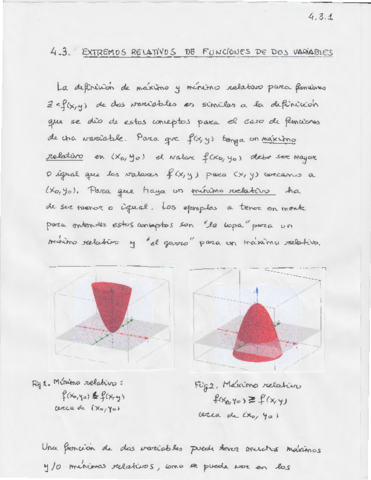 4.3.1
4.3. EXTREMOS RELATIVOS DE FUNCIONES DE DOS VARIABLES
La definición de máximo y mínimo relativo para funciones
z = f(x,y) de dos variables es similar a la definición
que se dio de estos conceptos para el caso de funciones
de una variable. Para que f(x,y) tenga un máximo
relativo en (x0,y0) el valor f(x0,y0) debe ser mayor
o igual que los valores f(x,y) para (x,y) cercano a
(x0,y0). Para que haya un mínimo relativo ha
de ser menor o igual. Los ejemplos a tener en mente
para entender estos conceptos son "la copa" para un
mínimo relativo y "el gorro" para un máximo relativo.
Fig 1. Mínimo relativo:
f(x0,y0) ≤ f(x,y)
cerca de (x0,y0)
Fig 2. Máximo relativo
f(x0,y0) ≥ f(x,y)
cerca de (x0,y0)
Una función de dos variables puede tener muchos máximos
y/o mínimos relativos, como se puede ver en las